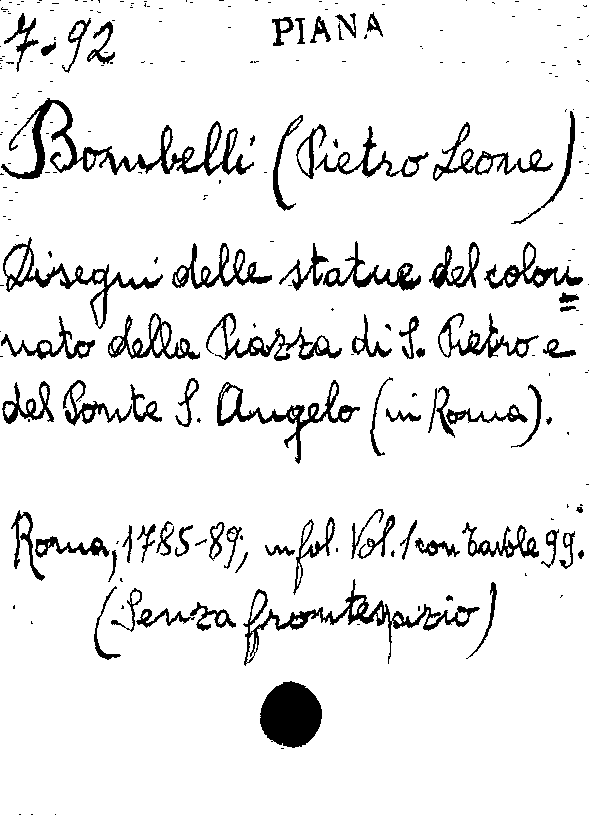 7-92
PIANA
Bombelli (Pietro Leone)
Disegni delle statue del colon=
nato della Piazza di S. Pietro e
del Ponte S. Angelo (in Roma).
Roma, 1785-89, in fol. Vol. 1 con tavole 99.
(Senza frontespazio)